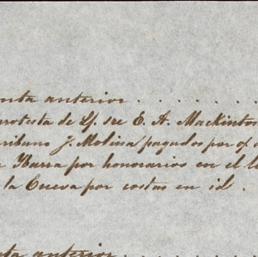 nta anterior . . . . . . .
rotesta de Lf. sre E. A. Mackintos
ribano J. Molina pagados por of
Ibarra por honorarios en el l
la Cueva por costas en id .
ta anterior . . . . . . .